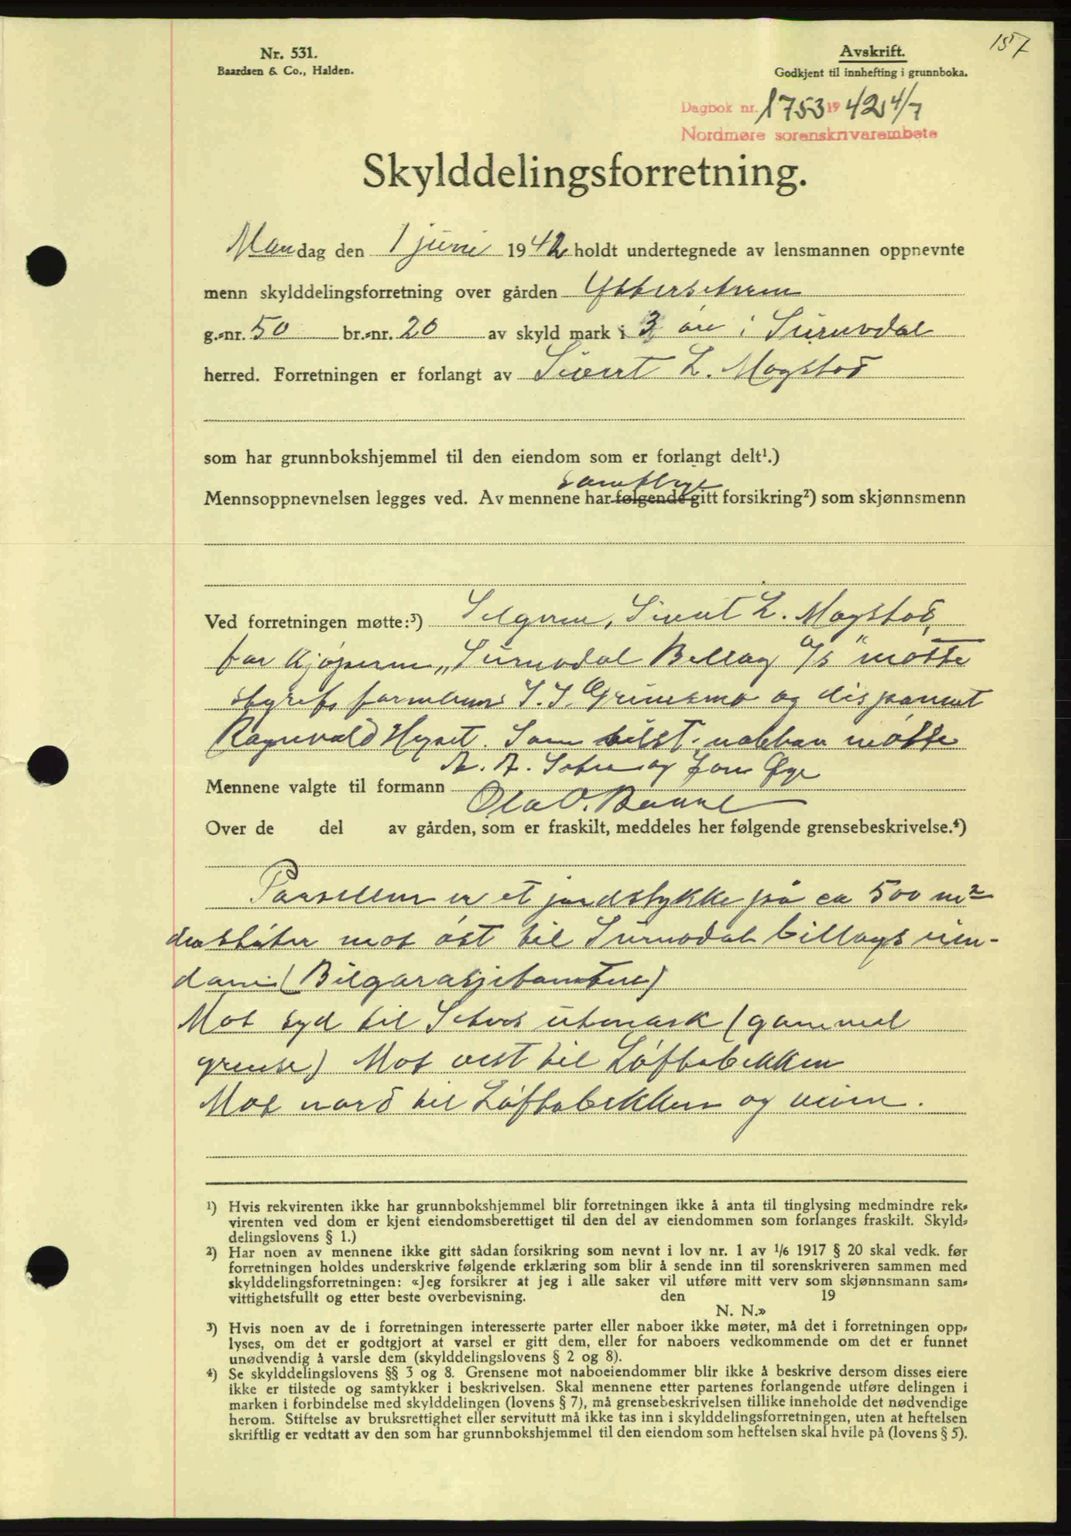 157
Nr. 531.
Baardsen & Co., Halden.
Avskrift.
Godkjent til innhefting i grunnboka.
Dagbok nr. 1753 1942 4/7
Nordmøre sorenskrivarembete
Skylddelingsforretning.
Mandag den 1 juni 1942 holdt undertegnede av lensmannen oppnevnte
menn skylddelingsforretning over gården
g.-nr. 50 br.-nr. 20 av skyld mark i 3 øre i Surnadal
herred. Forretningen er forlangt av Sivert L. Mogstad
som har grunnbokshjemmel til den eiendom som er forlangt delt¹.)
samtlige
Mennsoppnevnelsen legges ved. Av mennene har følgende gitt forsikring²) som skjønnsmenn
Ved forretningen møtte:³) Selgeren, Sivert L. Mogstad,
for kjøperen „Surnadal Billag A/S“ møtte
styrets formann og disponent
Ragnvald Hyset. Som naboer møtte
og Jon Øye
Mennene valgte til formann Ola O.
Over de del av gården, som er fraskilt, meddeles her følgende grensebeskrivelse.⁴)
Parsellen er et jordstykke på ca 500 m²
den støter mot øst til Surnadal billags eien-
dom (Bilgarasjetomten)
Mot syd til utmark (gammel
grense) Mot vest til Løftabekken
Mot nord til Løftabekken og veien.
¹) Hvis rekvirenten ikke har grunnbokshjemmel blir forretningen ikke å anta til tinglysing medmindre rek-
virenten ved dom er kjent eiendomsberettiget til den del av eiendommen som forlanges fraskilt. Skyld-
delingslovens § 1.)
²) Har noen av mennene ikke gitt sådan forsikring som nevnt i lov nr. 1 av 1/6 1917 § 20 skal vedk. før
forretningen holdes underskrive følgende erklæring som blir å sende inn til sorenskriveren sammen med
skylddelingsforretningen: «Jeg forsikrer at jeg i alle saker vil utføre mitt verv som skjønnsmann sam-
vittighetsfullt og etter beste overbevisning. den 19
N. N.»
³) Hvis noen av de i forretningen interesserte parter eller naboer ikke møter, må det i forretningen opp-
lyses, om det er godtgjort at varsel er gitt dem, eller for naboers vedkommende om det er funnet
unødvendig å varsle dem (skylddelingslovens § 2 og 8).
⁴) Se skylddelingslovens §§ 3 og 8. Grensene mot naboeiendommer blir ikke å beskrive dersom disses eiere
ikke er tilstede og samtykker i beskrivelsen. Skal mennene etter partenes forlangende utføre delingen i
marken i forbindelse med skylddelingen (lovens § 7), må grensebeskrivelsen tillike inneholde det nødvendige
herom. Stiftelse av bruksrettighet eller servitutt må ikke tas inn i skylddelingsforretningen, uten at heftelsen
skriftlig er vedtatt av den som har grunnbokshjemmel til den eiendom som heftelsen skal hvile på (lovens § 5).